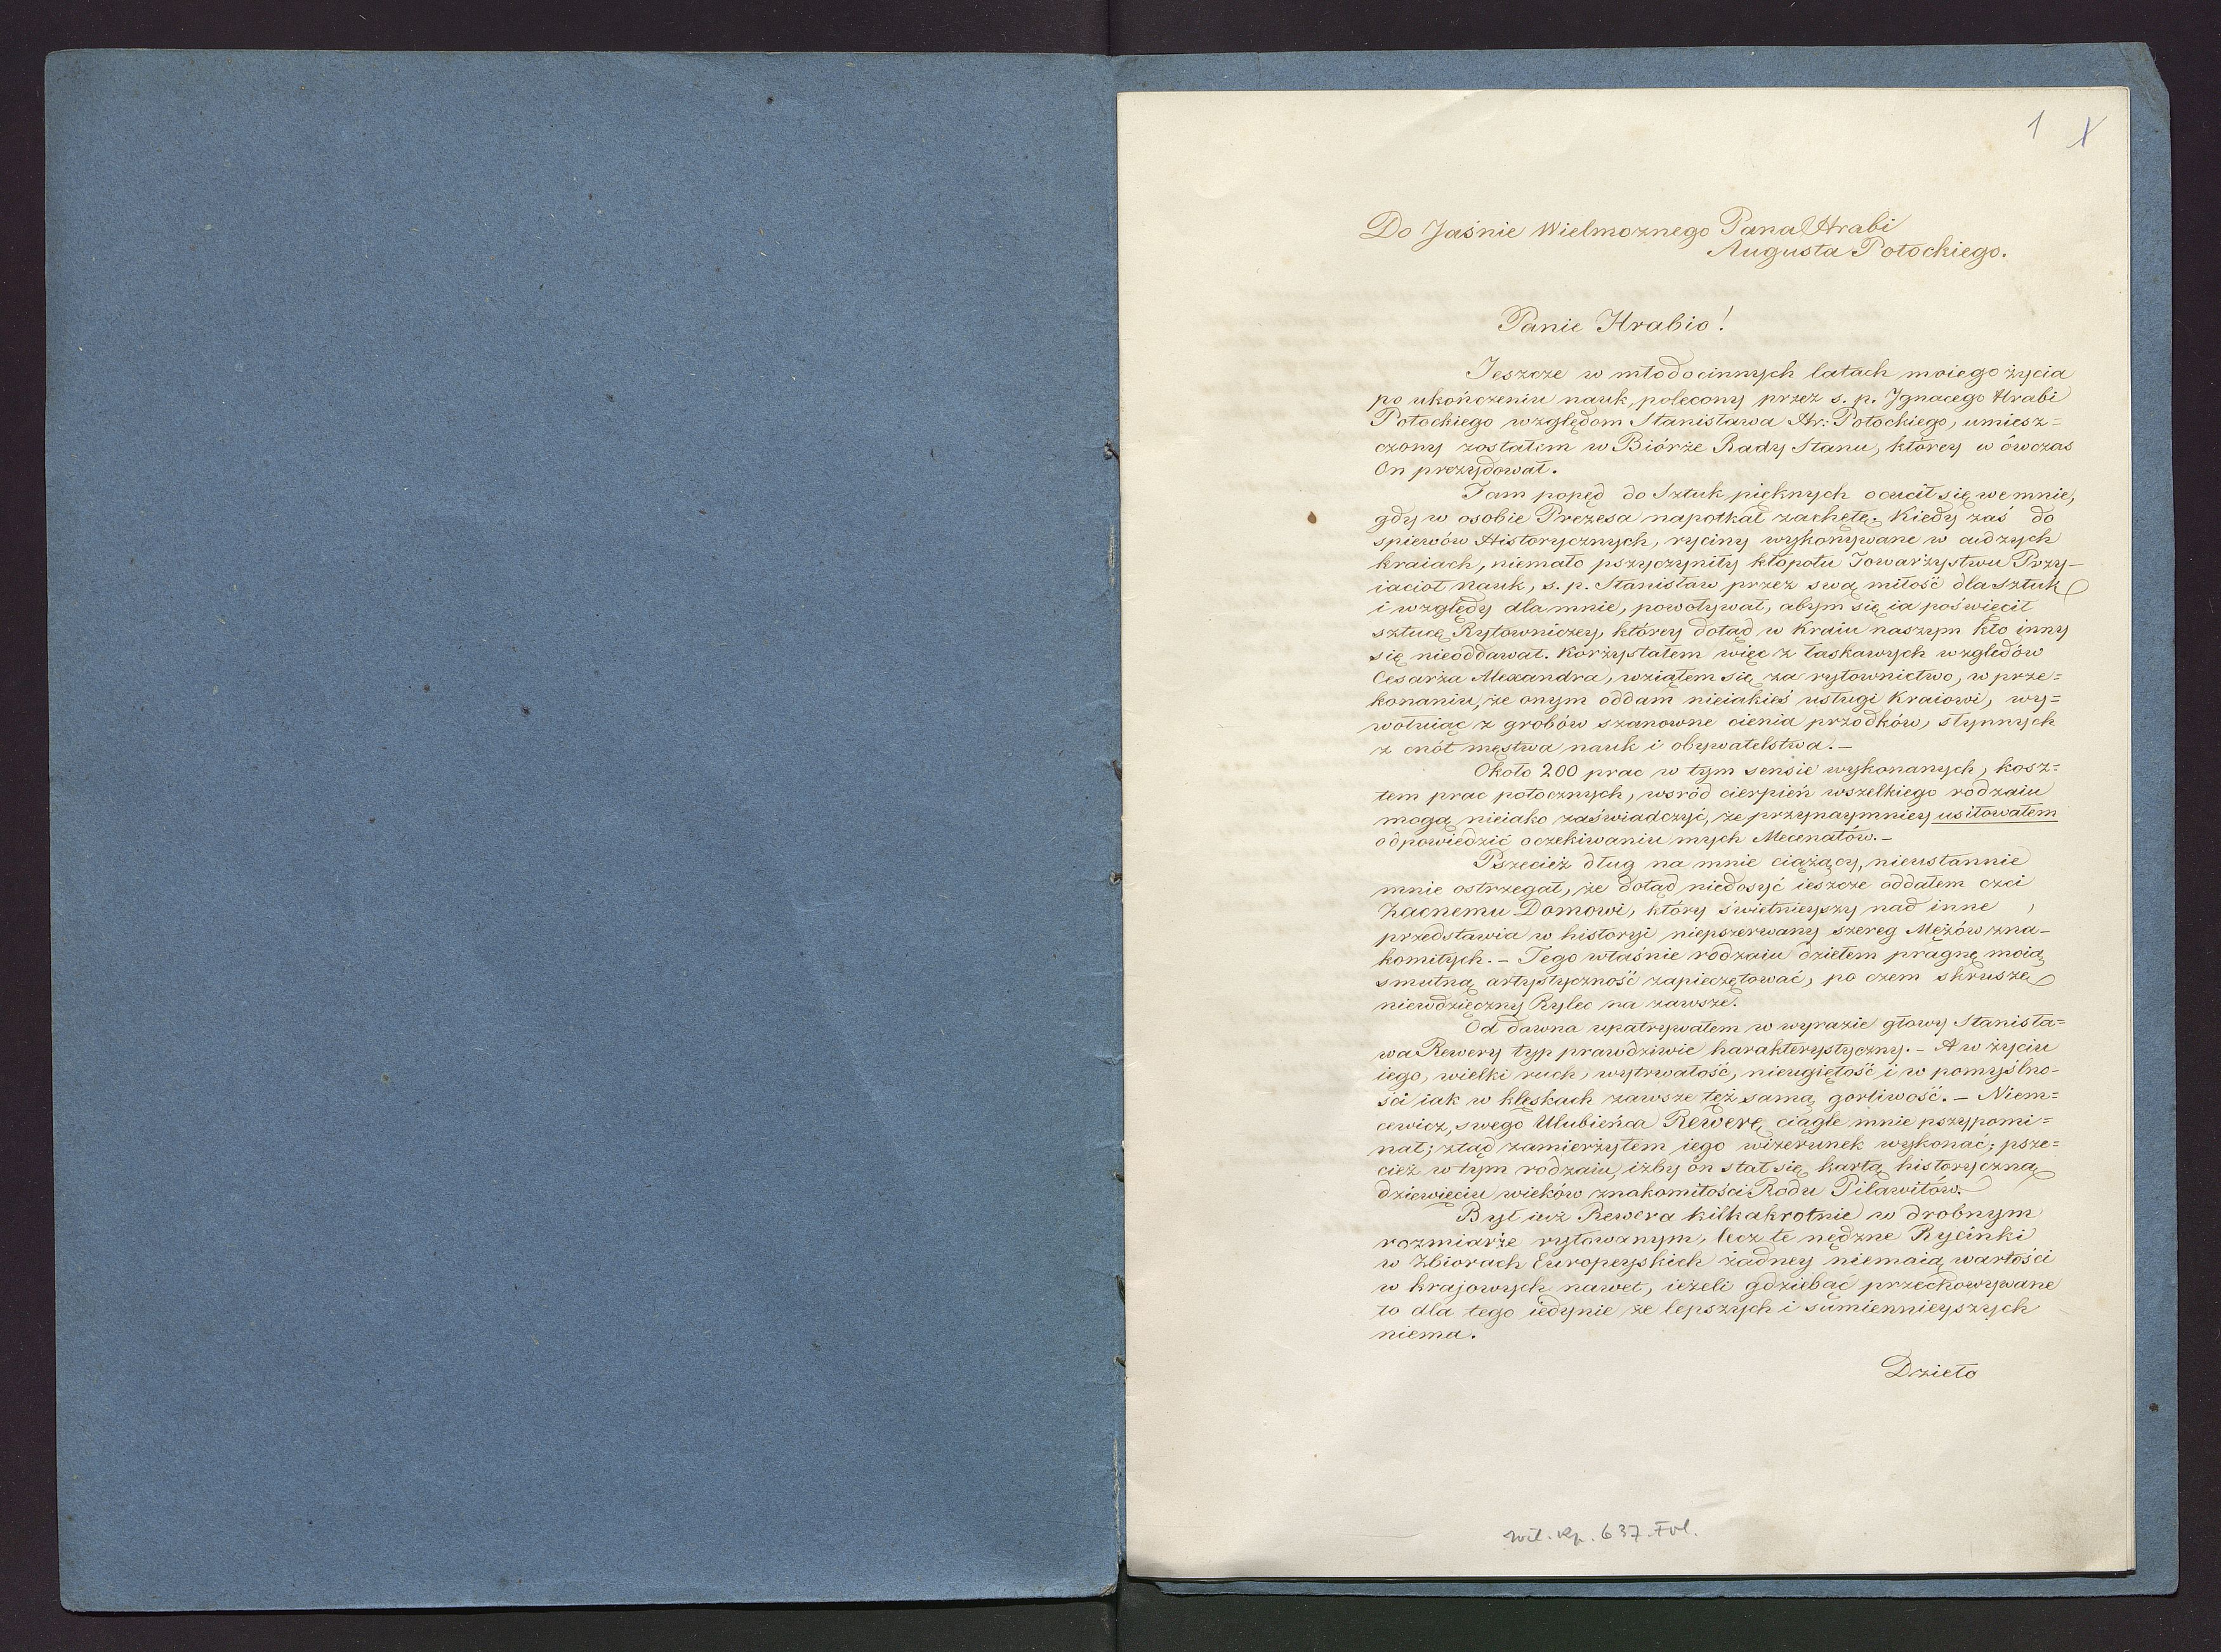 1 X
Do Jaśnie Wielmoznego Pana Hrabi
Augusta Potockiego.
Panie Hrabio!
Jeszcze w młodocinnych latach moiego życia
po ukończeniu nauk, polecony przez s. p. Ignacego Hrabi
Potockiego względom Stanisława Hr: Potockiego, umiesz=
czony zostałem w Biórze Rady Stanu, którey w ówczas
On prezydował.
Tam popęd do Sztuk pięknych ocucił się we mnie,
gdy w osobie Prezesa napotkał zachętę. Kiedy zaś do
spiewów Historycznych, ryciny wykonywane w cudzych
kraiach, niemało pszyczyniły kłopotu Towarzystwu Przy-
iaciół Nauk, s. p. Stanisław przez swą miłość dla sztuk
i względy dla mnie, powoływał, abym się ia poświęcił
sztucę Rytowniczey, którey dotąd w Kraiu naszym kto inny
się nieoddawał. Korzystałem więc z łaskawych względów
Cesarza Alexandra, wziąłem się za rytownictwo, w prze=
konaniu, że onym oddam nieiakieś usługi Kraiowi, wy=
wołuiąc z grobów szanowne cienia przodków, słynnych
z cnót męstwa nauk i obywatelstwa.—
Około 200 prac w tym sensie wykonanych, kosz=
tem prac potocznych, wsród cierpień wszelkiego rodzaiu
mogą nieiako zaświadczyć, że przynaymniey usiłowałem
odpowiedzić oczekiwaniu mych Mecenatów.—
Pszecież dług na mnie ciążący, nieustannie
mnie ostrzegał, że dotąd niedosyć ieszcze oddałem czci
Zacnemu Domowi, który świetnieyszy nad inne,
przedstawia w historyi niepszerwany szereg Mężów zna-
komitych.— Tego właśnie rodzaiu dziełem pragnę moią
smutną artystyczność zapieczętować, po czem skruszę
niewdzięczny Rylec na zawsze.
Od dawna upatrywałem w wyrazie głowy Stanisła=
wa Rewery typ prawdziwie harakterystyczny.— A w życiu
iego, wielki ruch, wytrwałość, nieugiętość i w pomyślno-
ści iak w klęskach zawsze też samą gorliwość.— Niem=
cewicz, swego Ulubieńca Rewerę ciągle mnie pszypomi=
nał; ztąd zamierzyłem iego wizerunek wykonać; psze=
cież w tym rodzaiu, iżby on stał się kartą historyczną
dziewięciu wieków znakomitości Rodu Pilawitów.
Był iuż Rewera kilkakrotnie w drobnym
rozmiarze rytowanym, lecz te nędzne Rycinki
w Zbiorach Europeyskich żadney niemaią wartości
w krajowych nawet, ieżeli gdziebąć przechowywane
to dla tego iedynie że lepszych i sumiennieyszych
niema.
Dzieło
Wil. Rp. 637. Fol.